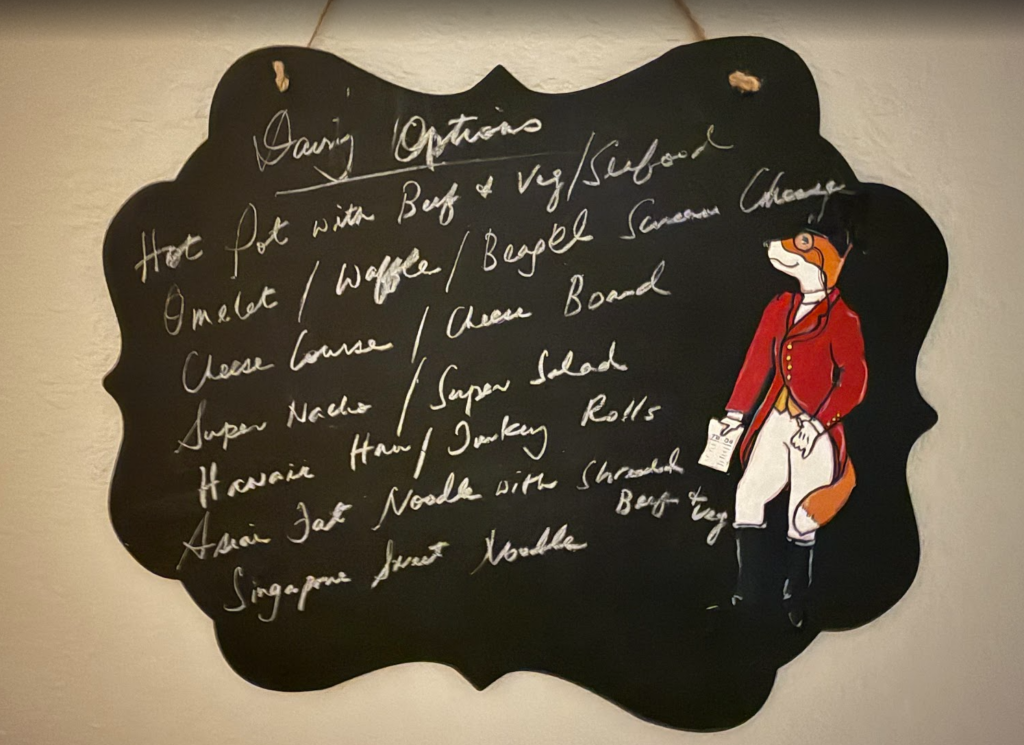 Options
Hot Pot with Beef & Veg/Seafood
Omelet / Waffle / Cheese
Cheese Course / Cheese Board
Super Nacho / Super Salad
Hawaii Ham/ Turkey Rolls
Asian Fat Noodle with Shredded
Beef & Veg
Singapore Street Noodle